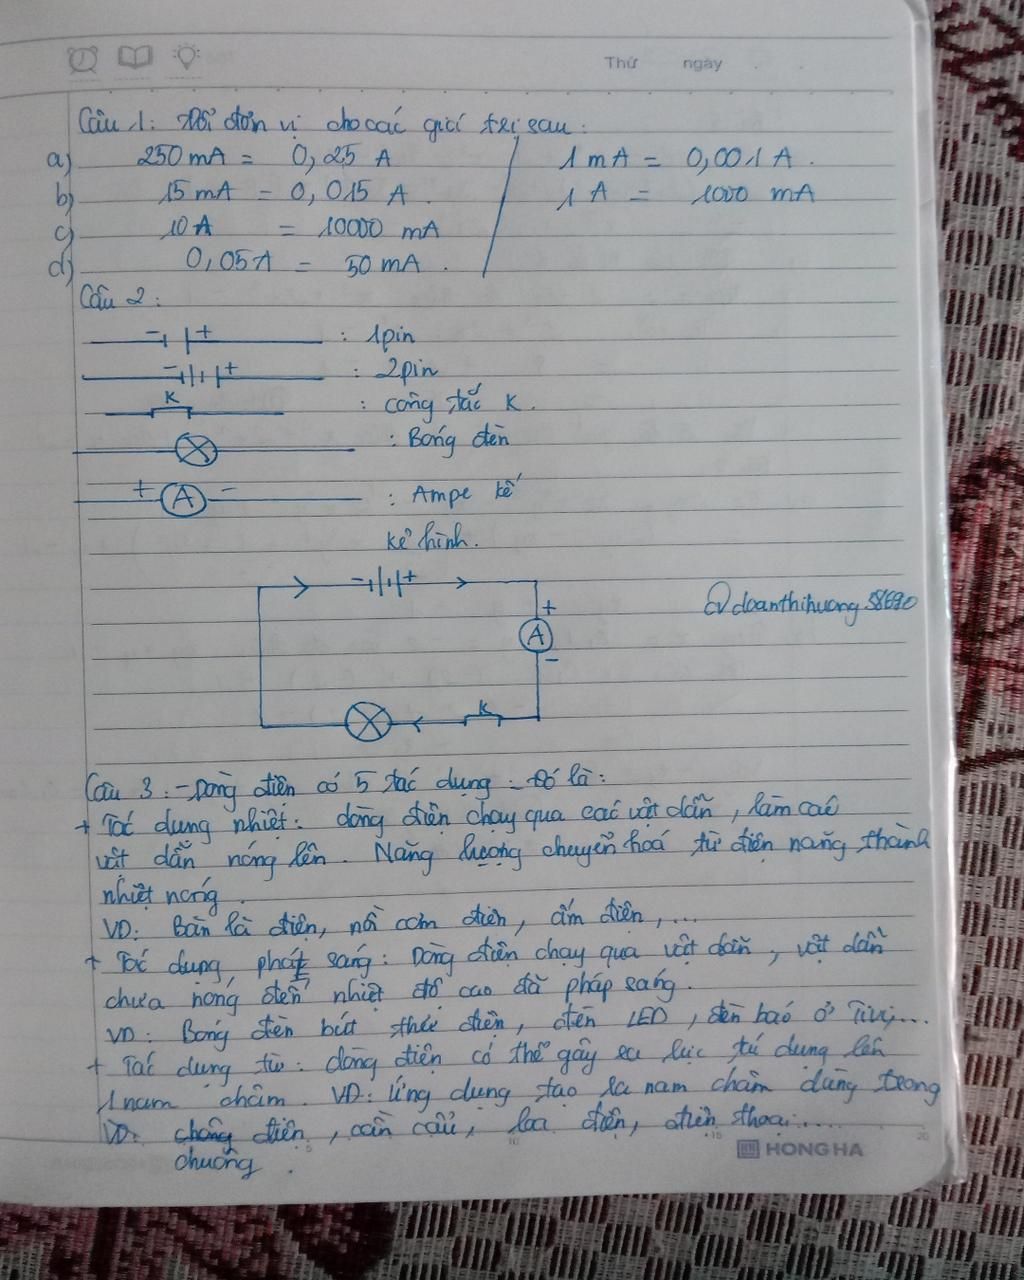 Thứ ngày
Câu 1: Đổi đơn vị cho các giới trị sau:
a) 250 mA = 0,25 A 1 mA = 0,001 A.
b) 15 mA = 0,015 A. 1 A = 1000 mA
c) 10 A = 10000 mA
d) 0,05A = 50 mA.
Câu 2:
- + : 1pin
- + : 2pin
K : công tắc K.
: Bóng đèn
+ A - : Ampe kế
kẻ hình.
- +
doanthihuong 58690
+
A
-
K
Câu 3: - Dòng điện có 5 tác dụng: Đó là:
+ Tác dụng nhiệt: dòng điện chạy qua các vật dẫn, làm các
vật dẫn nóng lên. Năng lượng chuyển hoá từ điện năng thành
nhiệt nóng.
VD: Bàn là điện, nồi cơm điện, ấm điện,...
+ Tác dụng phát sáng: Dòng điện chạy qua vật dẫn, vật dẫn
chưa nóng đến nhiệt độ cao đã pháp sáng.
VD: Bóng đèn bút thử điện, đèn LED, đèn báo ở Tivi,...
+ Tác dụng từ: dòng điện có thể gây ra lực từ dụng lên
1 nam châm. VD: Ứng dụng tạo ra nam châm dùng trong
VD: chông điện, cần cẩu, loa điện, điện thoại.....
chuông.
HONG HA